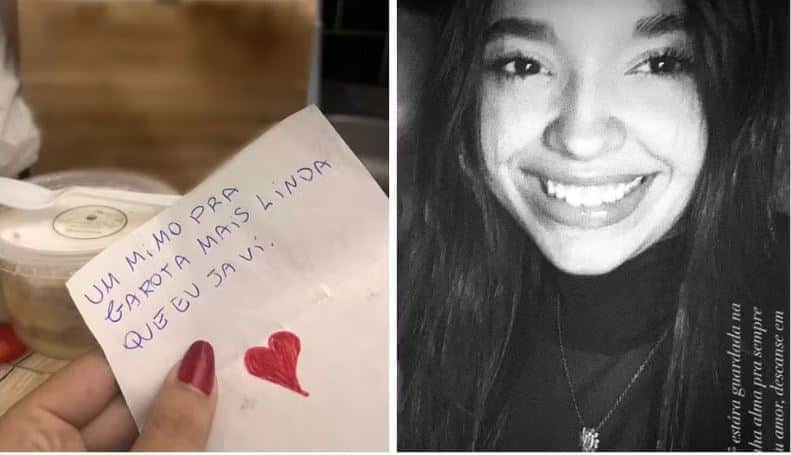 UM MIMO PRA
GAROTA MAIS LINDA
QUE EU JA VI.
estára guardada na
ha alma pra sempre
u amor, descanse em